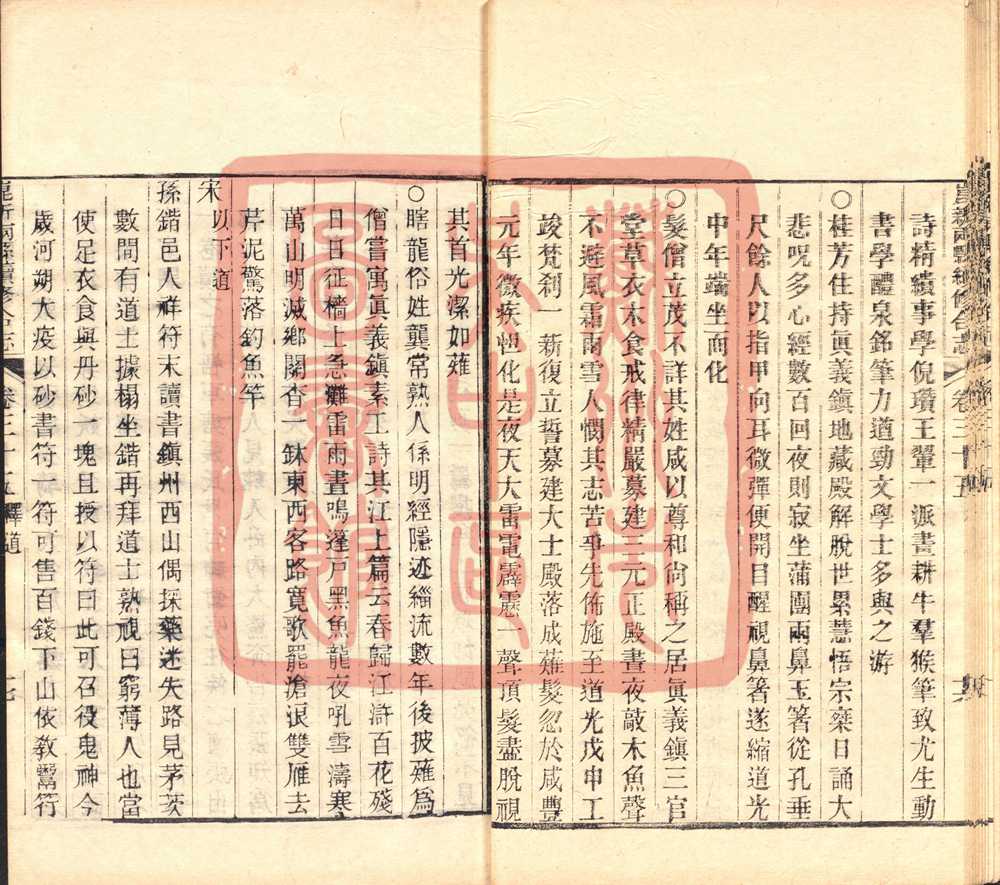 崑新兩縣續修合志 卷三十五
詩精繢事學倪瓚王翬一派畫耕牛羣猴筆致尤生動
書學醴泉銘筆力遒勁文學士多與之游
○桂芳住持眞義鎮地藏殿解脫世累慧悟宗乘日誦大
悲呪多心經數百回夜則寂坐蒲團兩鼻玉箸從孔垂
尺餘人以指甲向耳微彈便開目醒視鼻箸遂縮道光
中年端坐而化
○髮僧立茂不詳其姓咸以尊和尙稱之居眞義鎮三官
堂草衣木食戒律精嚴募建三元正殿晝夜敲木魚聲
不避風霜雨雪人憫其志苦爭先佈施至道光戊申工
竣梵刹一新復立誓募建大士殿落成薙髮忽於咸豐
元年微疾怛化是夜天大雷電霹靂一聲頂髮盡脫視
其首光潔如薙
○瞎龍俗姓龔常熟人係明經隱迹緇流數年後披薙爲
僧嘗寓眞義鎮素工詩其江上篇云春歸江滸百花殘
日日征檣上急灘雷雨晝鳴蓬戸黑魚龍夜吼雪濤寒
萬山明滅鄉關杳一鉢東西客路寬歌罷滄浪雙雁去
芹泥驚落釣魚竿
以下道
宋
孫錯邑人祥符末讀書鎮州西山偶採藥迷失路見茅茨
數間有道士據榻坐錯再拜道士熟視曰窮薄人也當
使足衣食與丹砂一塊且授以符曰此可召役鬼神今
歲河朔大疫以砂書符一符可售百錢下山依敎鬻符
崑新兩縣續修合志 卷三十五 釋道 七